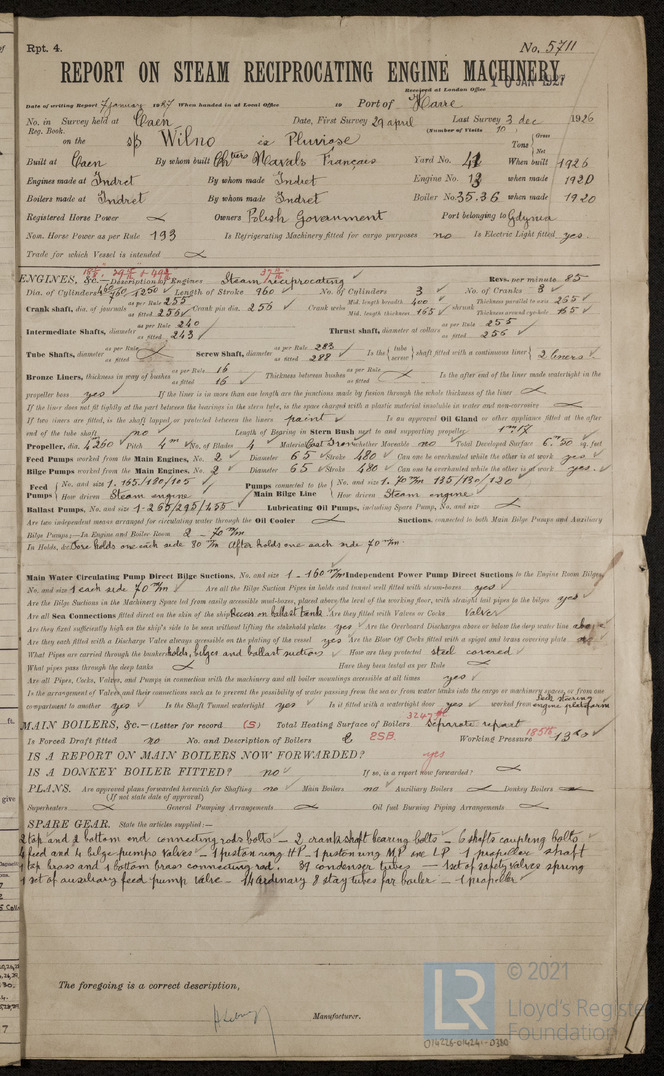 Rpt. 4.
No. 5711
REPORT ON STEAM RECIPROCATING ENGINE MACHINERY.
Received at London Office 10 JAN 1927
Date of writing Report 7 January 1927 When handed in at Local Office 19 Port of Havre
No. in Survey held at Caen Date, First Survey 29 april Last Survey 3 dec 1926
Reg. Book. (Number of Visits 10)
on the s/s Wilno ex Pluviose Tons { Gross Net
Built at Caen By whom built Chtiers Navals Français Yard No. 41 When built 1926
Engines made at Indret By whom made Indret Engine No. 13 when made 1920
Boilers made at Indret By whom made Indret Boiler No. 35.36 when made 1920
Registered Horse Power Owners Polish Government Port belonging to Gdynia
Nom. Horse Power as per Rule 193 Is Refrigerating Machinery fitted for cargo purposes no Is Electric Light fitted yes
Trade for which Vessel is intended
ENGINES, &c.—Description of Engines Steam reciprocating Revs. per minute 85
Dia. of Cylinders 460 760 1250 Length of Stroke 960 No. of Cylinders 3 No. of Cranks 3
Crank shaft, dia. of journals as per Rule 255 as fitted 256 Crank pin dia. 256 Crank webs Mid. length breadth 400 Mid. length thickness 165 shrunk Thickness parallel to axis 265 Thickness around eye-hole 165
Intermediate Shafts, diameter as per Rule 240 as fitted 243 Thrust shaft, diameter at collars as per Rule 255 as fitted 256
Tube Shafts, diameter as per Rule as fitted Screw Shaft, diameter as per Rule 283 as fitted 288 Is the { tube screw } shaft fitted with a continuous liner { 2 liners
Bronze Liners, thickness in way of bushes as per Rule 16 as fitted 16 Thickness between bushes as per Rule as fitted Is the after end of the liner made watertight in the
propeller boss yes If the liner is in more than one length are the junctions made by fusion through the whole thickness of the liner
If the liner does not fit tightly at the part between the bearings in the stern tube, is the space charged with a plastic material insoluble in water and non-corrosive
If two liners are fitted, is the shaft lapped or protected between the liners paint Is an approved Oil Gland or other appliance fitted at the after
end of the tube shaft no Length of Bearing in Stern Bush next to and supporting propeller 1m17
Propeller, dia. 4m260 Pitch 4m No. of Blades 4 Material Cast Iron whether Moveable no Total Developed Surface 6m.50 sq. feet
Feed Pumps worked from the Main Engines, No. 2 Diameter 65 Stroke 480 Can one be overhauled while the other is at work yes
Bilge Pumps worked from the Main Engines, No. 2 Diameter 65 Stroke 480 Can one be overhauled while the other is at work yes.
Feed Pumps { No. and size 1. 165/130/105 How driven Steam engine Pumps connected to the Main Bilge Line { No. and size 1. 70 m/m 135/130/120 How driven Steam engine
Ballast Pumps, No. and size 1-265/295/255 Lubricating Oil Pumps, including Spare Pump, No. and size
Are two independent means arranged for circulating water through the Oil Cooler Suctions, connected to both Main Bilge Pumps and Auxiliary
Bilge Pumps;—In Engine and Boiler Room 2 - 70 m/m
In Holds, &c. Fore holds one each side 80 m/m After holds one each side 70 m/m
Main Water Circulating Pump Direct Bilge Suctions, No. and size 1 - 160 m/m Independent Power Pump Direct Suctions to the Engine Room Bilges,
No. and size 1 each side 70 m/m Are all the Bilge Suction Pipes in holds and tunnel well fitted with strum-boxes yes
Are the Bilge Suctions in the Machinery Space led from easily accessible mud-boxes, placed above the level of the working floor, with straight tail pipes to the bilges yes
Are all Sea Connections fitted direct on the skin of the ship Recess on ballast tanks Are they fitted with Valves or Cocks Valves
Are they fixed sufficiently high on the ship's side to be seen without lifting the stokehold plates yes Are the Overboard Discharges above or below the deep water line above
Are they each fitted with a Discharge Valve always accessible on the plating of the vessel yes Are the Blow Off Cocks fitted with a spigot and brass covering plate
What Pipes are carried through the bunkers holds, bilges and ballast suction How are they protected steel covered
What pipes pass through the deep tanks Have they been tested as per Rule
Are all Pipes, Cocks, Valves, and Pumps in connection with the machinery and all boiler mountings accessible at all times yes
Is the arrangement of Valves, and their connections such as to prevent the possibility of water passing from the sea or from water tanks into the cargo or machinery spaces, or from one
compartment to another yes Is the Shaft Tunnel watertight yes Is it fitted with a watertight door yes worked from engine platform
MAIN BOILERS, &c.—(Letter for record (S) Total Heating Surface of Boilers 3247 Separate report
Is Forced Draft fitted no No. and Description of Boilers 2SB. Working Pressure 185 lb
IS A REPORT ON MAIN BOILERS NOW FORWARDED? yes
IS A DONKEY BOILER FITTED? no If so, is a report now forwarded?
PLANS. Are approved plans forwarded herewith for Shafting no Main Boilers no Auxiliary Boilers Donkey Boilers
(If not state date of approval)
Superheaters General Pumping Arrangements Oil fuel Burning Piping Arrangements
SPARE GEAR. State the articles supplied:—
2 top and 2 bottom end connecting rods bolts — 2 crankshaft bearing bolts — 6 shafts coupling bolts
4 feed and 4 bilge pumps valves — 1 piston ring HP — 1 piston ring M.P. one LP 1 propeller shaft
1 top brass and 1 bottom brass connecting rod. 37 condenser tubes — 1 set of safety valves spring
1 set of auxiliary feed pump valve — 14 ordinary 8 stay tubes for boiler — 1 propeller
The foregoing is a correct description,
Manufacturer.
© 2021
Lloyd's Register
Foundation
LR
014226-014241-0330